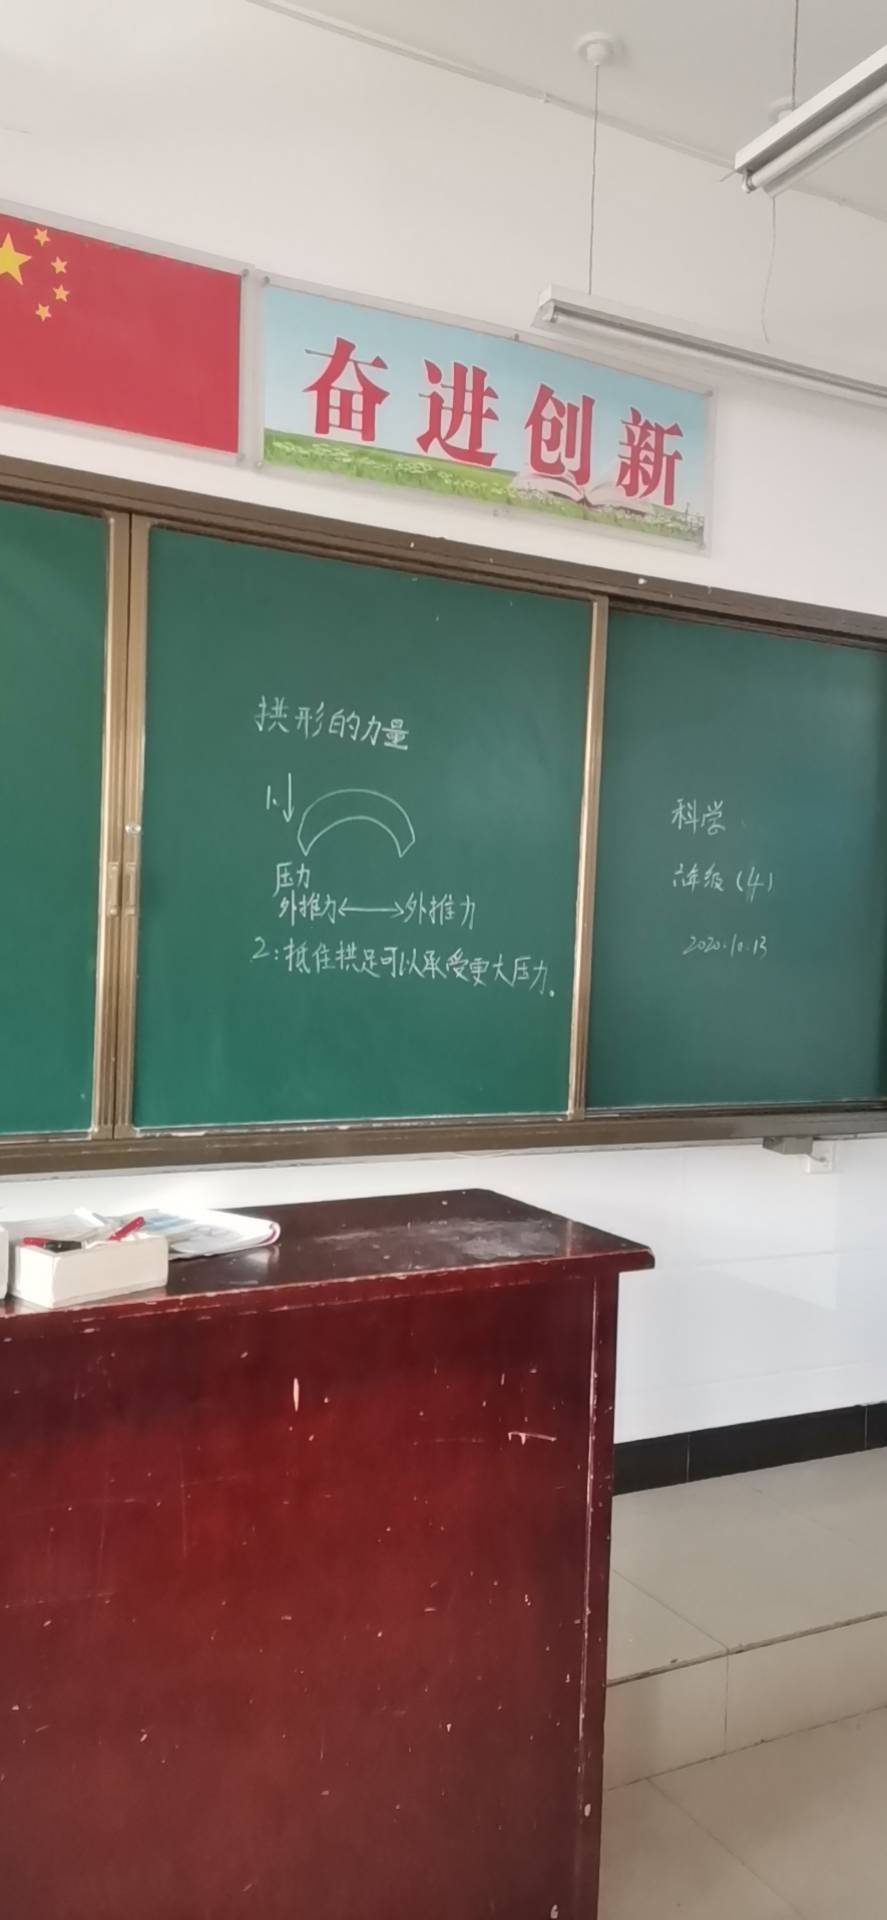 奋进创新
拱形的力量
1.
压力
外推力 外推力
2:抵住拱足可以承受更大压力。
科学
六年级(4)
2020.10.13